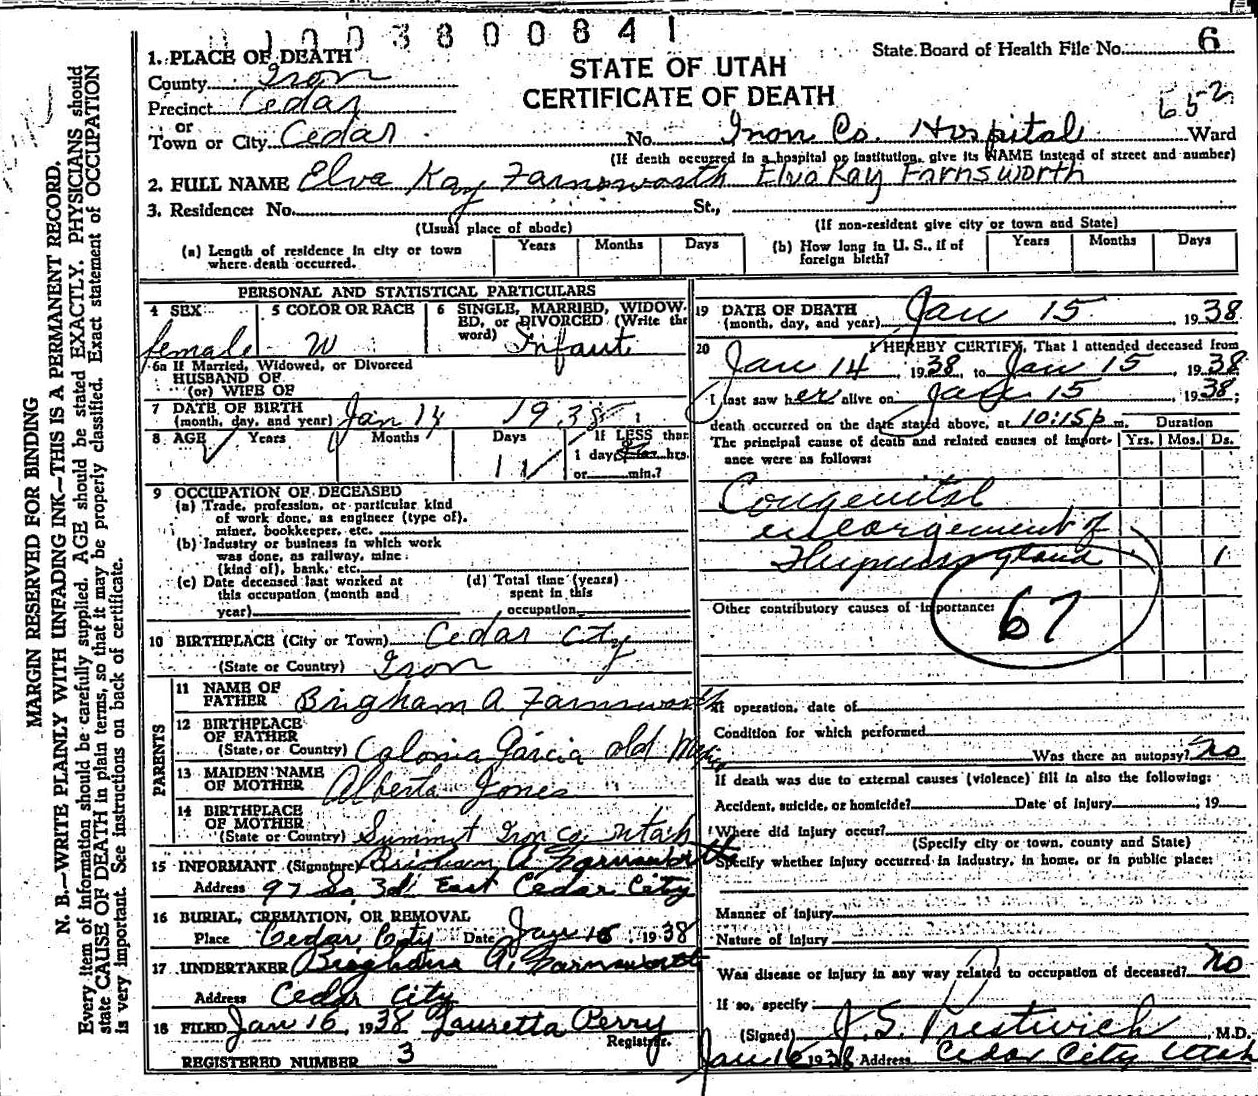 1003800841
State Board of Health File No. 6
STATE OF UTAH
CERTIFICATE OF DEATH
652
1. PLACE OF DEATH
County Iron
Precinct Cedar
or
Town or City Cedar No. Iron Co. Hospital Ward
(If death occurred in a hospital or institution, give its NAME instead of street and number)
2. FULL NAME Elva Kay Farnsworth Elva Kay Farnsworth
3. Residence: No. St.,
(Usual place of abode) (If non-resident give city or town and State)
(a) Length of residence in city or town where death occurred. Years Months Days
(b) How long in U. S., if of foreign birth? Years Months Days
PERSONAL AND STATISTICAL PARTICULARS
4 SEX female
5 COLOR OR RACE W
6 SINGLE, MARRIED, WIDOWED, or DIVORCED (Write the word) Infant
6a If Married, Widowed, or Divorced
HUSBAND OF
(or) WIFE OF
7 DATE OF BIRTH
(month, day, and year) Jan 14 1938
8 AGE Years Months Days 1 If LESS than
1 day hrs.
or min.?
9 OCCUPATION OF DECEASED
(a) Trade, profession, or particular kind
of work done, as engineer (type of),
miner, bookkeeper, etc.
(b) Industry or business in which work
was done, as railway, mine
(kind of), bank, etc.
(c) Date deceased last worked at
this occupation (month and
year)
(d) Total time (years)
spent in this
occupation
10 BIRTHPLACE (City or Town) Cedar City
(State or Country) Iron
PARENTS
11 NAME OF
FATHER Brigham A Farnsworth
12 BIRTHPLACE
OF FATHER
(State, or Country) Colonia Garcia old Mexico
13 MAIDEN NAME
OF MOTHER Alberta Jones
14 BIRTHPLACE
OF MOTHER
(State or Country) Summit Iron Co. Utah
15 INFORMANT (Signature) Brigham A Farnsworth
Address 97 So, 3d East Cedar City
16 BURIAL, CREMATION, OR REMOVAL
Place Cedar City Date Jan 16 1938
17 UNDERTAKER Brigham A. Farnsworth
Address Cedar City
18 FILED Jan 16, 1938 Lauretta Perry
Registrar.
REGISTERED NUMBER 3
19 DATE OF DEATH
(month, day, and year) Jan 15, 1938
20 I HEREBY CERTIFY, That I attended deceased from
Jan 14, 1938, to Jan 15, 1938
I last saw her alive on Jan 15, 1938;
death occurred on the date stated above, at 10:15 p.m.
The principal cause of death and related causes of importance were as follows:
Duration
Yrs. Mos. Ds.
Congenital
enlargement of
Thymus gland 1
Other contributory causes of importance:
67
If operation, date of
Condition for which performed
Was there an autopsy? no
If death was due to external causes (violence) fill in also the following:
Accident, suicide, or homicide? Date of injury , 19
Where did injury occur?
(Specify city or town, county and State)
Specify whether injury occurred in industry, in home, or in public place:
Manner of injury
Nature of injury
Was disease or injury in any way related to occupation of deceased? no
If so, specify
(Signed) J. S. Prestwich, M.D.
Jan 16 1938 Address Cedar City Utah
MARGIN RESERVED FOR BINDING
N. B.—WRITE PLAINLY WITH UNFADING INK—THIS IS A PERMANENT RECORD.
Every item of information should be carefully supplied. AGE should be stated EXACTLY. PHYSICIANS should
state CAUSE OF DEATH in plain terms, so that it may be properly classified. Exact statement of OCCUPATION
is very important. See instructions on back of certificate.